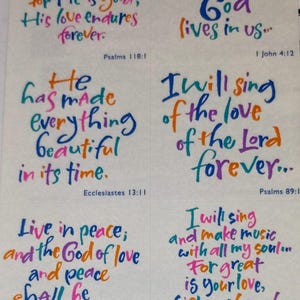 is good;
His love endures
forever.
Psalms 118:1
God
lives in us...
1 John 4:12
He
has made
everything
beautiful
in its time.
Ecclesiastes 13:11
I will sing
of the love
of the Lord
forever...
Psalms 89:1
Live in peace;
and the God of love
and peace
shall be
I will sing
and make music
with all my soul...
For great
is your love,